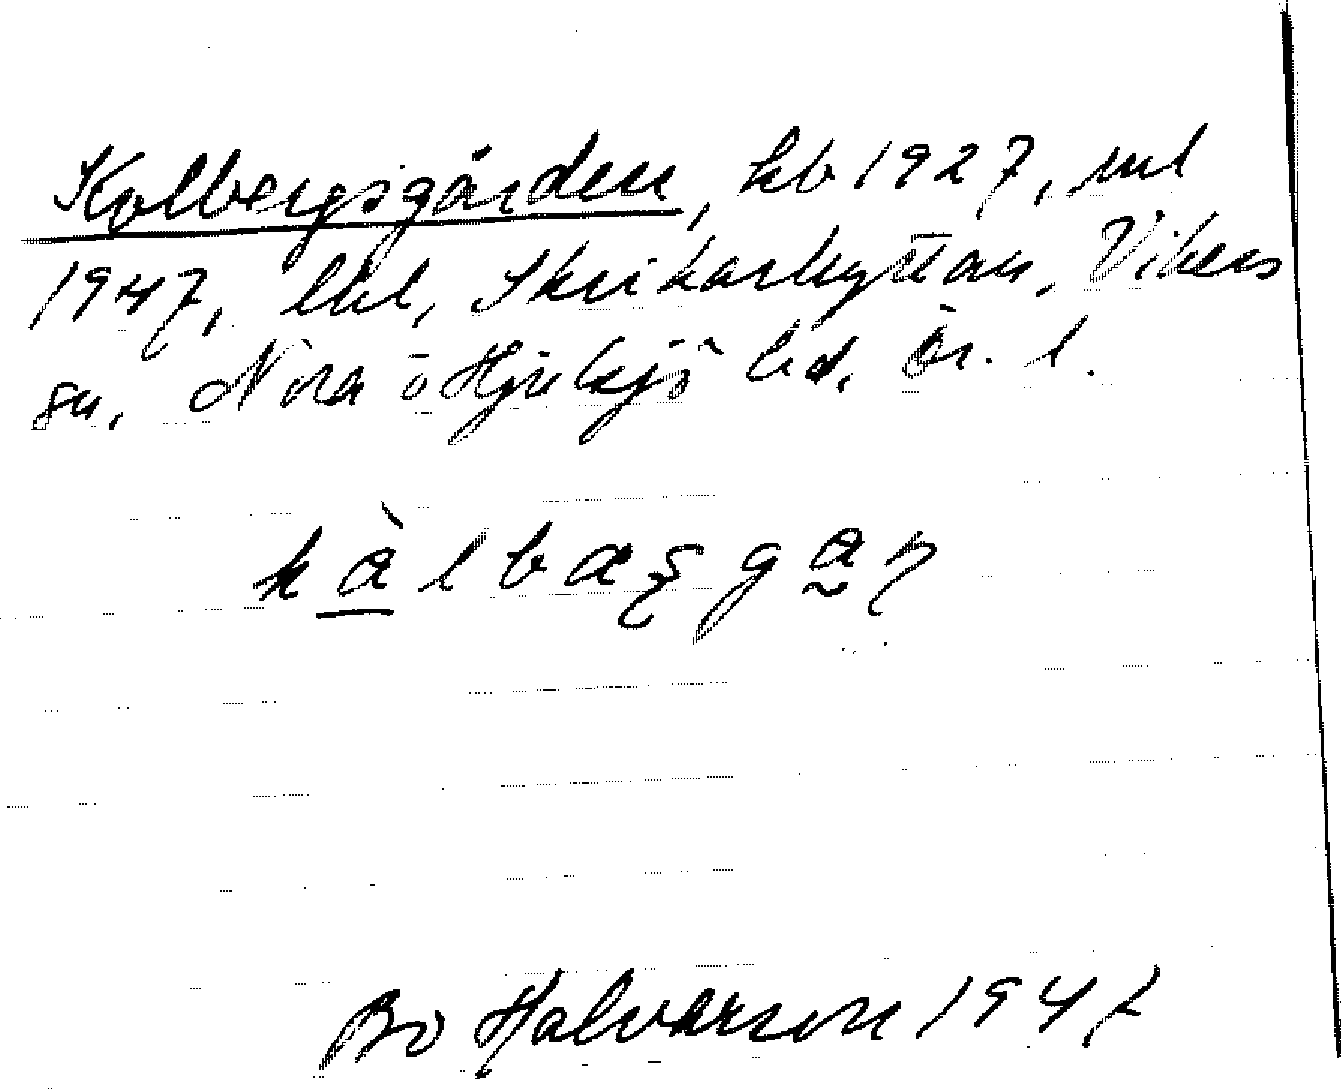 Kolbergsgården, kb 1927, ml
1947, lht, Skrikarhyttan, Vikers
sn, Nora o Hjulsjö bd, Ör. l.
kålbæşgan
Bo Halvarson 1947